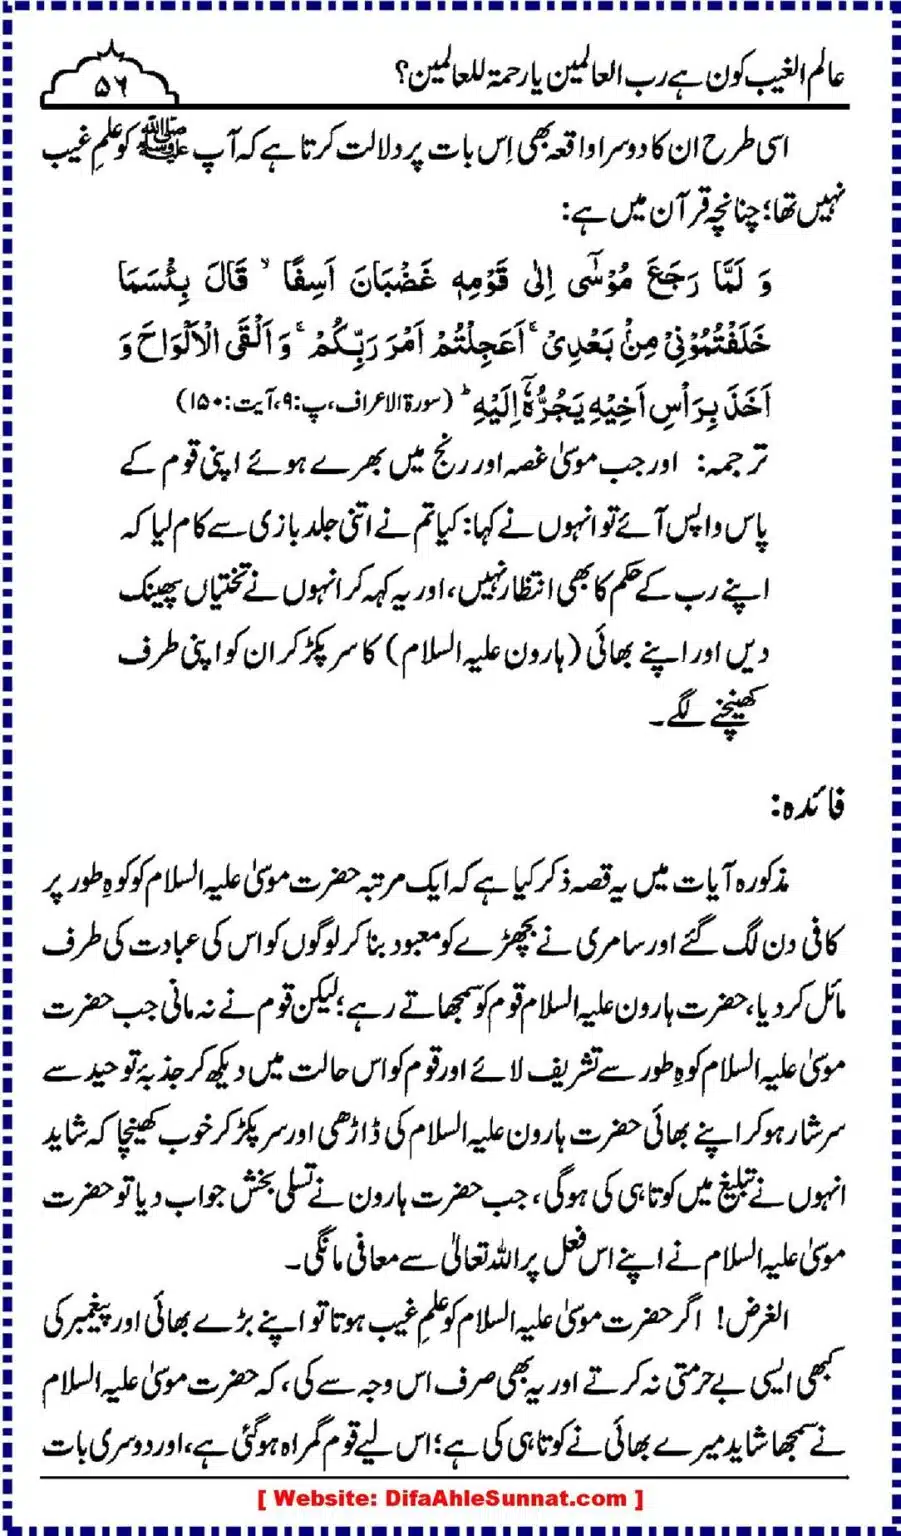 عالم الغیب کون ہے رب العالمین یا رحمۃ للعالمین؟
۵۶
اسی طرح ان کا دوسرا واقعہ بھی اِس بات پر دلالت کرتا ہے کہ آپ ﷺ کو علمِ غیب
نہیں تھا؛ چنانچہ قرآن میں ہے:
وَ لَمَّا رَجَعَ مُوْسٰۤی اِلٰی قَوْمِهٖ غَضْبَانَ اَسِفًا ۙ قَالَ بِئْسَمَا
خَلَفْتُمُوْنِیْ مِنْۢ بَعْدِیْ ۚ اَعَجِلْتُمْ اَمْرَ رَبِّكُمْ ۚ وَ اَلْقَی الْاَلْوَاحَ وَ
اَخَذَ بِرَاْسِ اَخِیْهِ یَجُرُّهٗۤ اِلَیْهِ ؕ (سورۃ الاعراف، پ:۹، آیت:۱۵۰)
ترجمہ: اور جب موسیٰ غصہ اور رنج میں بھرے ہوئے اپنی قوم کے
پاس واپس آئے تو انہوں نے کہا: کیا تم نے اتنی جلد بازی سے کام لیا کہ
اپنے رب کے حکم کا بھی انتظار نہیں، اور یہ کہہ کر انہوں نے تختیاں پھینک
دیں اور اپنے بھائی (ہارون علیہ السلام) کا سر پکڑ کر ان کو اپنی طرف
کھینچنے لگے۔
فائدہ:
مذکورہ آیات میں یہ قصہ ذکر کیا ہے کہ ایک مرتبہ حضرت موسیٰ علیہ السلام کو کوہِ طور پر
کافی دن لگ گئے اور سامری نے بچھڑے کو معبود بنا کر لوگوں کو اس کی عبادت کی طرف
مائل کر دیا، حضرت ہارون علیہ السلام قوم کو سمجھاتے رہے؛ لیکن قوم نے نہ مانی جب حضرت
موسیٰ علیہ السلام کوہِ طور سے تشریف لائے اور قوم کو اس حالت میں دیکھ کر جذبۂ توحید سے
سرشار ہو کر اپنے بھائی حضرت ہارون علیہ السلام کی ڈاڑھی اور سر پکڑ کر خوب کھینچا کہ شاید
انہوں نے تبلیغ میں کوتاہی کی ہوگی، جب حضرت ہارون نے تسلی بخش جواب دیا تو حضرت
موسیٰ علیہ السلام نے اپنے اس فعل پر اللہ تعالیٰ سے معافی مانگی۔
الغرض! اگر حضرت موسیٰ علیہ السلام کو علمِ غیب ہوتا تو اپنے بڑے بھائی اور پیغمبر کی
کبھی ایسی بے حرمتی نہ کرتے اور یہ بھی صرف اس وجہ سے کی، کہ حضرت موسیٰ علیہ السلام
نے سمجھا شاید میرے بھائی نے کوتاہی کی ہے؛ اس لیے قوم گمراہ ہوگئی ہے، اور دوسری بات
[ Website: DifaAhleSunnat.com ]